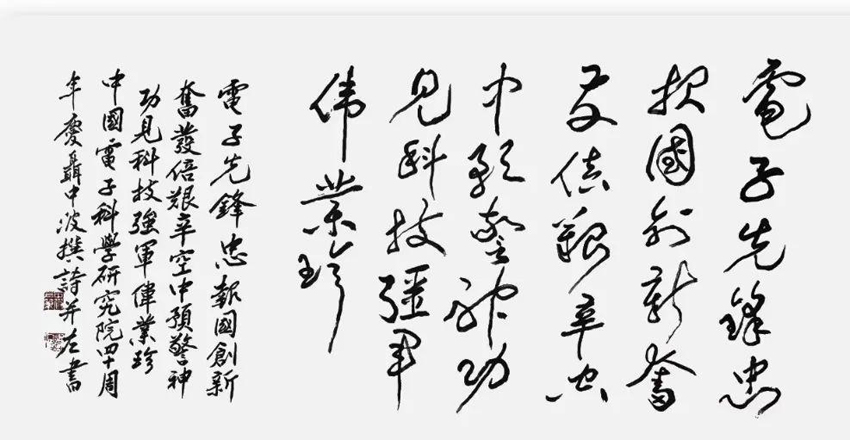 電子先鋒忠
报國創新奮
发倍艱辛空
中预警神功
見科技強軍
伟業珍
電子先鋒忠報國創新
奮發倍艱辛空中預警神
功見科技強軍偉業珍
中國電子科學研究院四十周
年慶聶中波撰詩并左書